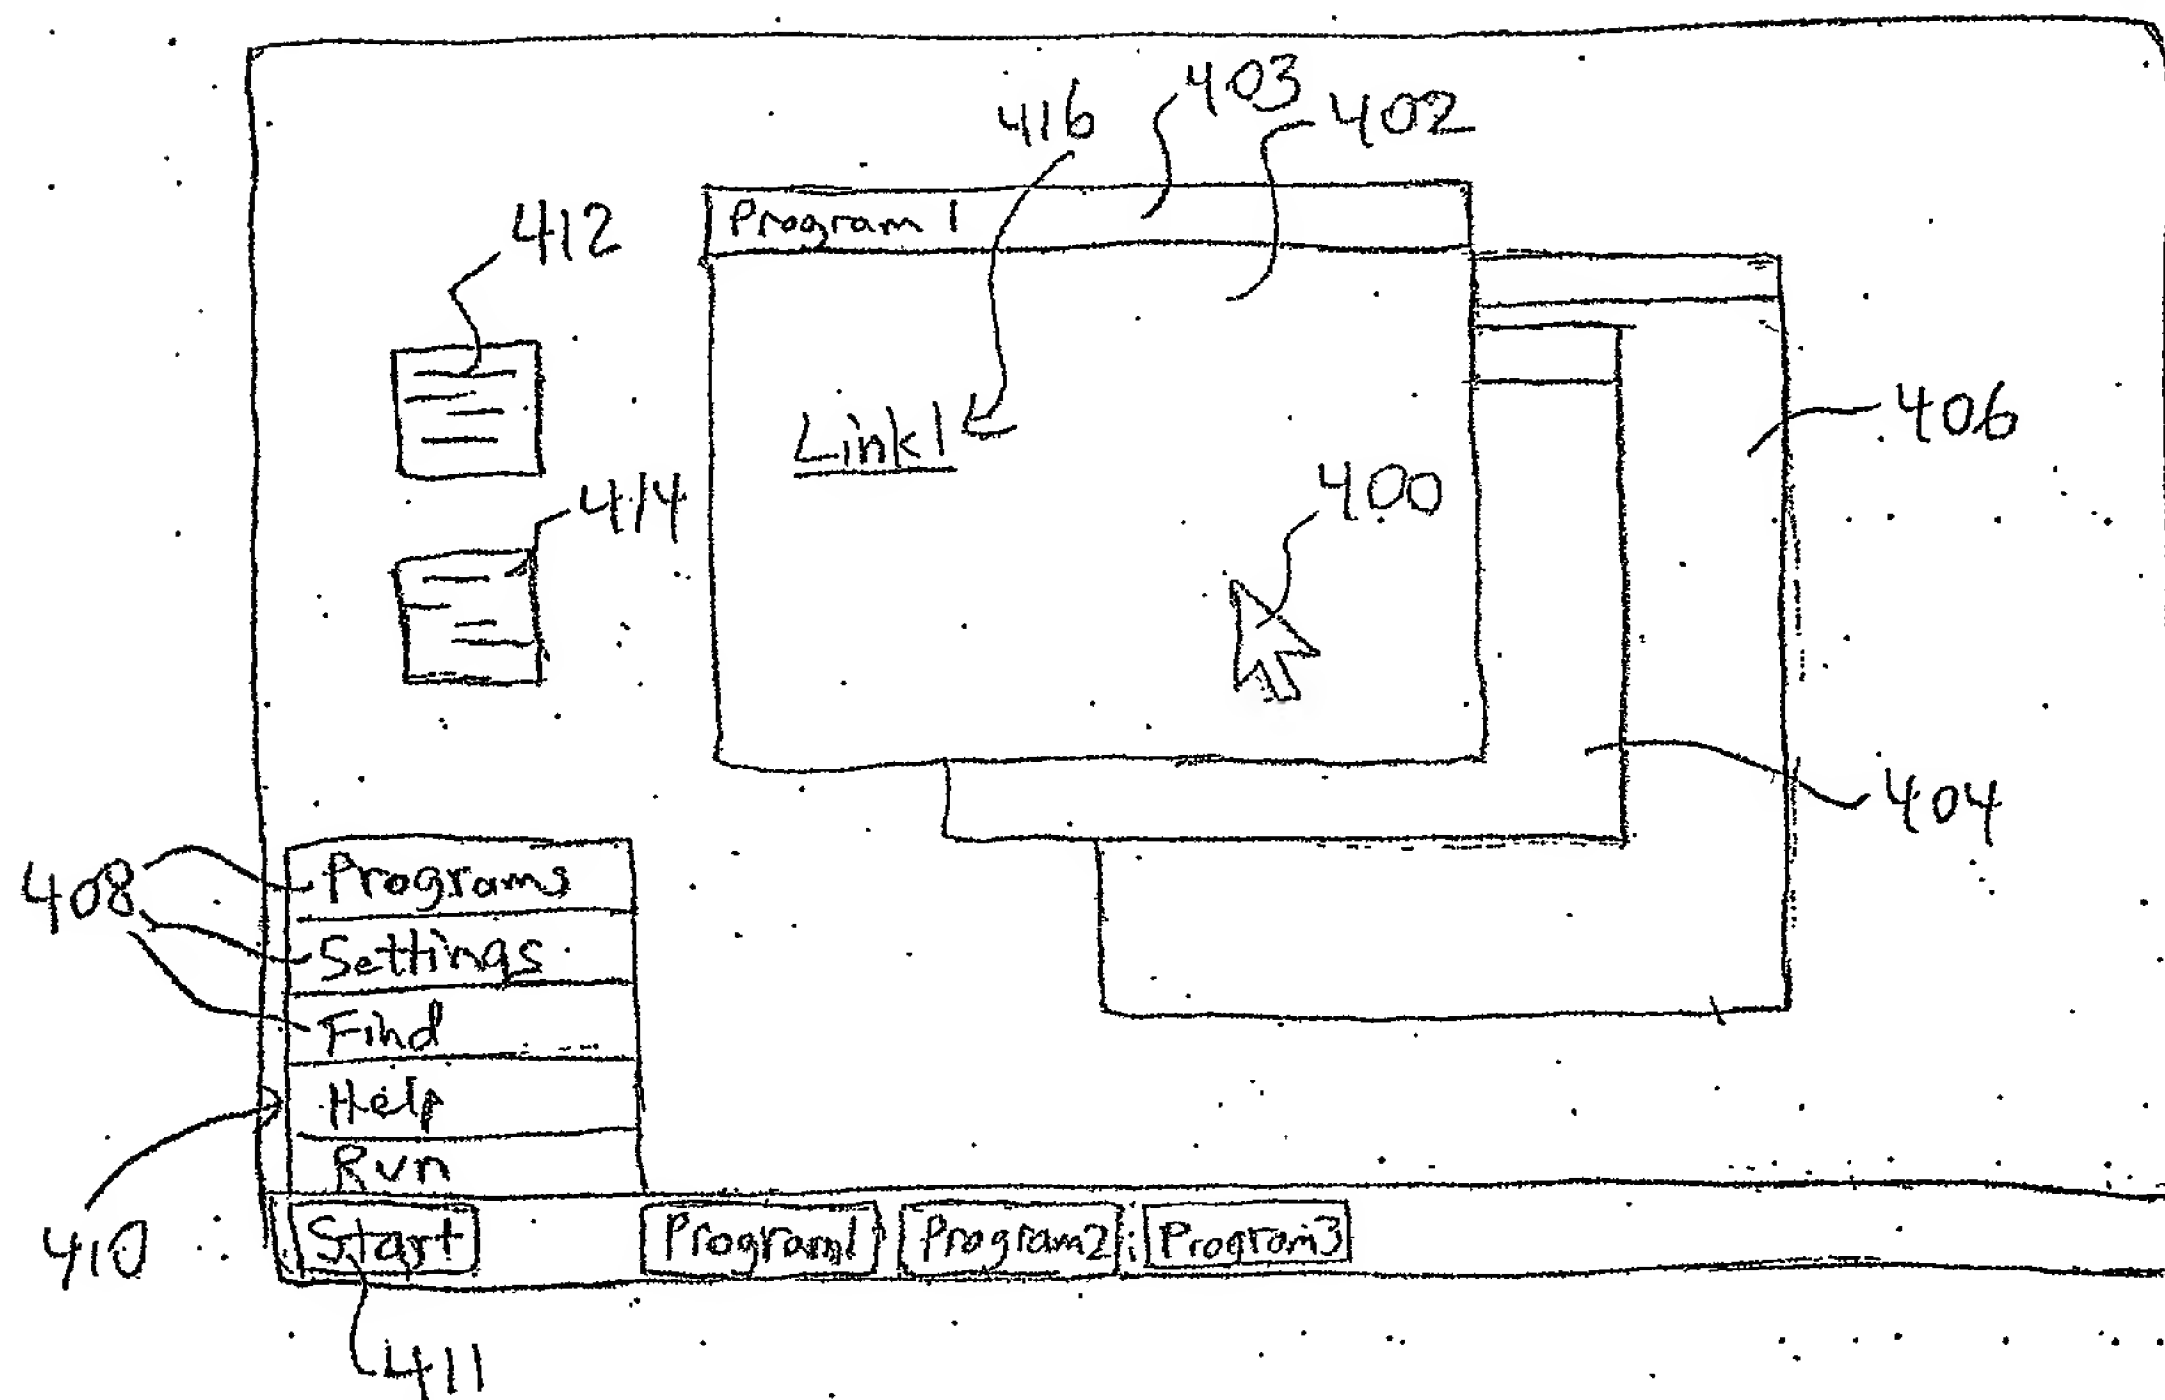 403
402
416
Program 1
412
406
Link1
400
414
404
408
Programs
Settings
Find
Help
Run
410
Start
Program1
Program2
Program3
411